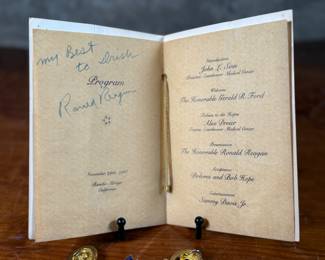 my Best
to Irish
Program
Ronald Reagan
November 29th, 
Rancho Mirage
California
Introduction
John L. Sinn
Director, Eisenhower Medical Center
Welcome
The Honorable Gerald R. Ford
Tribute to the Hopes
Alex Dreier
Trustee, Eisenhower Medical Center
Presentation
The Honorable Ronald Reagan
Acceptance
Dolores and Bob Hope
Entertainment
Sammy Davis Jr.